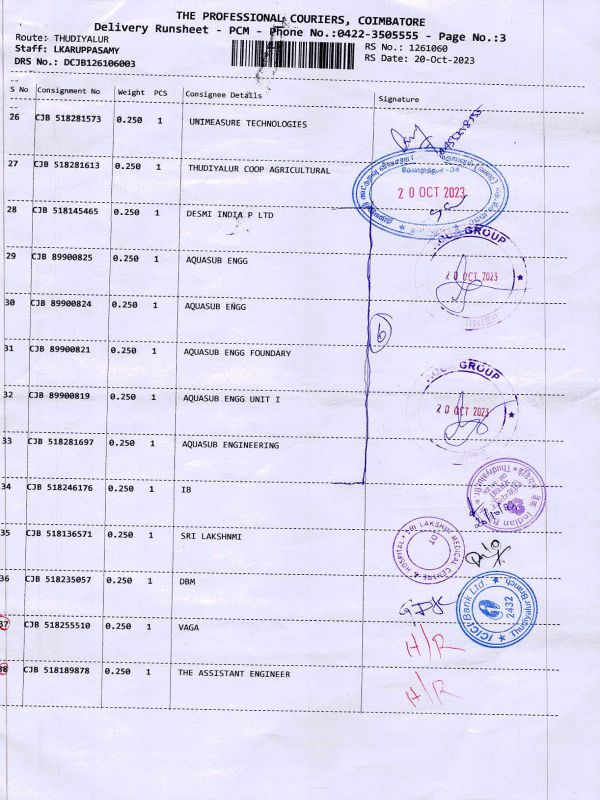 THE PROFESSIONAL COURIERS, COIMBATORE
Delivery Runsheet - PCM - Phone No.:0422-3505555 - Page No.:3
Route: THUDIYALUR
RS No.: 1261060
Staff: LKARUPPASAMY
RS Date: 20-Oct-2023
DRS No.: DCJB126106003
S No Consignment No Weight PCS Consignee Details Signature
26 CJB 518281573 0.250 1 UNIMEASURE TECHNOLOGIES
27 CJB 518281613 0.250 1 THUDIYALUR COOP AGRICULTURAL
20 OCT 2023
28 CJB 518145465 0.250 1 DESMI INDIA P LTD
GROUP
29 CJB 89900825 0.250 1 AQUASUB ENGG
20 OCT 2023
30 CJB 89900824 0.250 1 AQUASUB ENGG
6
31 CJB 89900821 0.250 1 AQUASUB ENGG FOUNDARY
GROUP
32 CJB 89900819 0.250 1 AQUASUB ENGG UNIT I
20 OCT 2023
33 CJB 518281697 0.250 1 AQUASUB ENGINEERING
34 CJB 518246176 0.250 1 IB
Indian
Thudiyalur
35 CJB 518136571 0.250 1 SRI LAKSHNMI
SRI LAKSHMI MEDICAL CENTRE & HOSPITAL
36 CJB 518235057 0.250 1 DBM
ICICI Bank Ltd.
2432
Thudiyalur Branch
37 CJB 518255510 0.250 1 VAGA
H/R
38 CJB 518189878 0.250 1 THE ASSISTANT ENGINEER
H/R